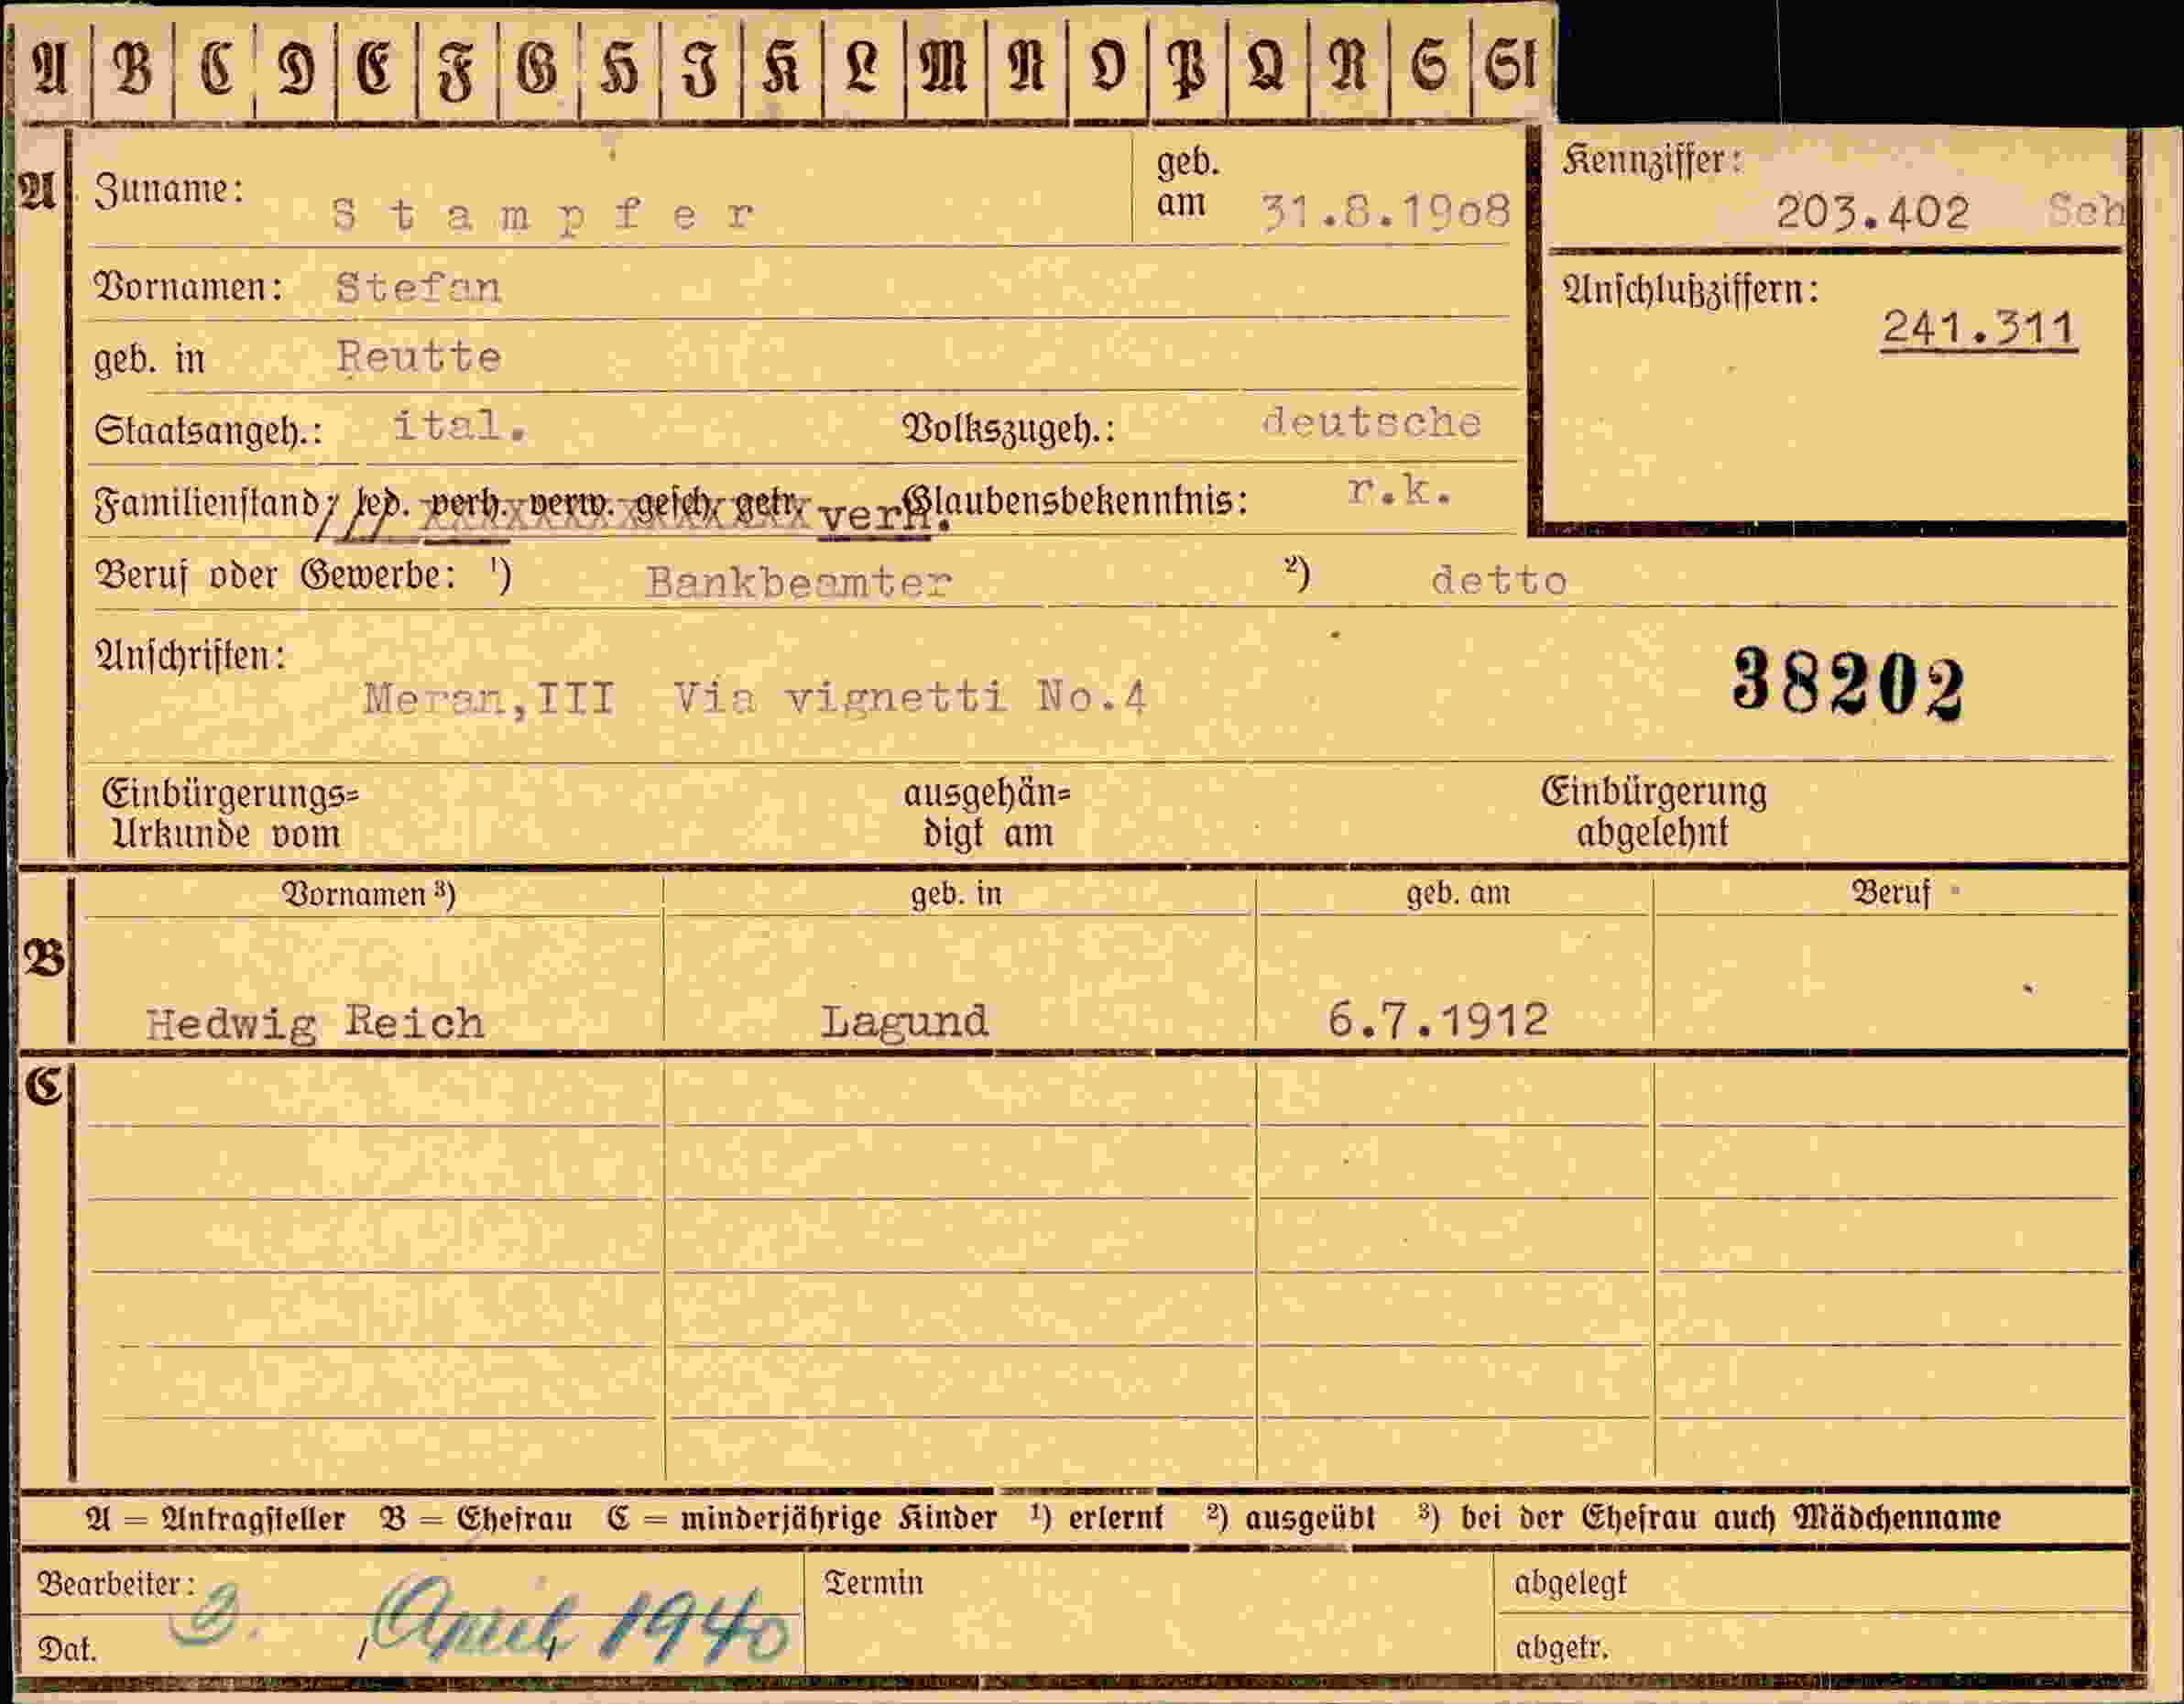 A B C D E F G H I K L M N O P Q R S St
A Zuname: Stampfer geb. am 31.8.1908 Kennziffer: 203.402 Sch
Vornamen: Stefan Anschlußziffern: 241.311
geb. in Reutte
Staatsangeh.: ital. Volkszugeh.: deutsche
Familienstand: led. verh. verw. gesch. getr. verh. Glaubensbekenntnis: r.k.
Beruf oder Gewerbe: ¹) Bankbeamter ²) detto
Anschriften:
Meran,III Via vignetti No.4 38202
Einbürgerungs= ausgehän= Einbürgerung
Urkunde vom digt am abgelehnt
B Vornamen ³) geb. in geb. am Beruf
Hedwig Reich Lagund 6.7.1912
C
A = Antragsteller B = Ehefrau C = minderjährige Kinder ¹) erlernt ²) ausgeübt ³) bei der Ehefrau auch Mädchenname
Bearbeiter: Termin abgelegt
3. April 1940
Dat. abgetr.